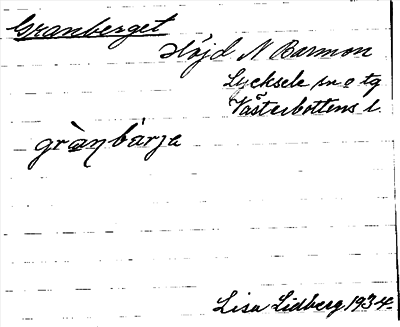 Granberget
Höjd N Barmon
Lycksele sn o tg
Västerbottens l.
grànbárja
Lisa Lidberg 1934.